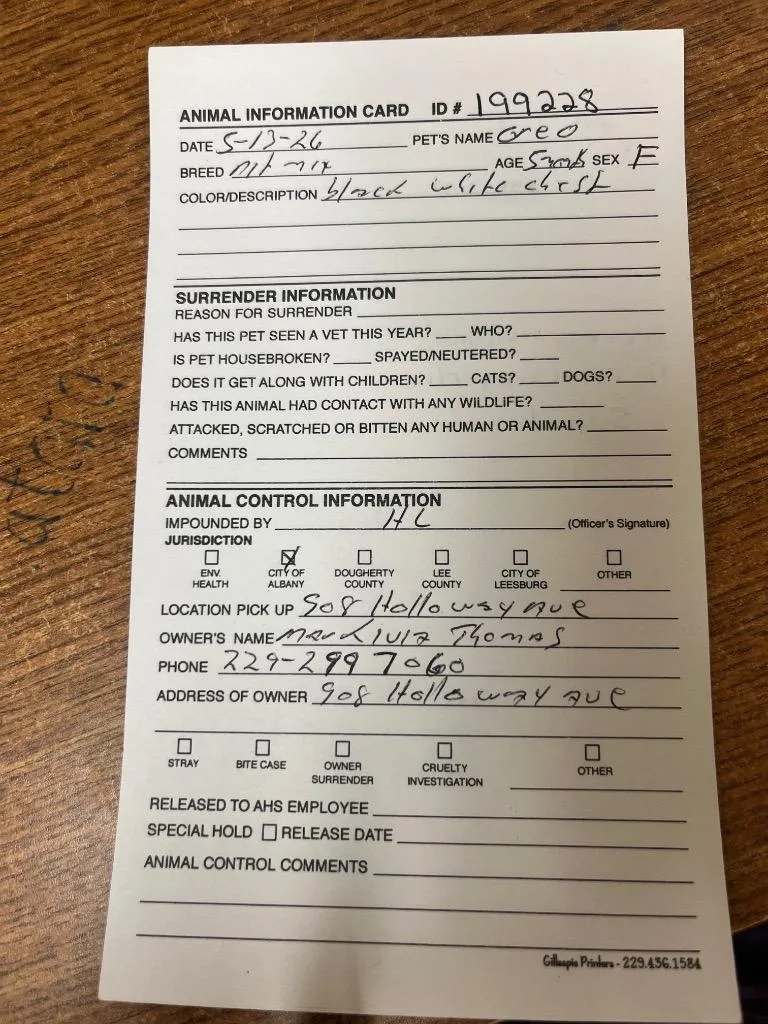 ANIMAL INFORMATION CARD ID # 199228
DATE 5-13-26 PET'S NAME Oreo
BREED pit mix AGE 5 mnth SEX F
COLOR/DESCRIPTION black white chest
SURRENDER INFORMATION
REASON FOR SURRENDER
HAS THIS PET SEEN A VET THIS YEAR? WHO?
IS PET HOUSEBROKEN? SPAYED/NEUTERED?
DOES IT GET ALONG WITH CHILDREN? CATS? DOGS?
HAS THIS ANIMAL HAD CONTACT WITH ANY WILDLIFE?
ATTACKED, SCRATCHED OR BITTEN ANY HUMAN OR ANIMAL?
COMMENTS
ANIMAL CONTROL INFORMATION
IMPOUNDED BY HL (Officer's Signature)
JURISDICTION
ENV. HEALTH CITY OF ALBANY DOUGHERTY COUNTY LEE COUNTY CITY OF LEESBURG OTHER
LOCATION PICK UP 908 Holloway ave
OWNER'S NAME Thomas
PHONE 229-299 7060
ADDRESS OF OWNER 908 Holloway ave
STRAY BITE CASE OWNER SURRENDER CRUELTY INVESTIGATION OTHER
RELEASED TO AHS EMPLOYEE
SPECIAL HOLD RELEASE DATE
ANIMAL CONTROL COMMENTS
Gillespie Printers - 229.436.1584